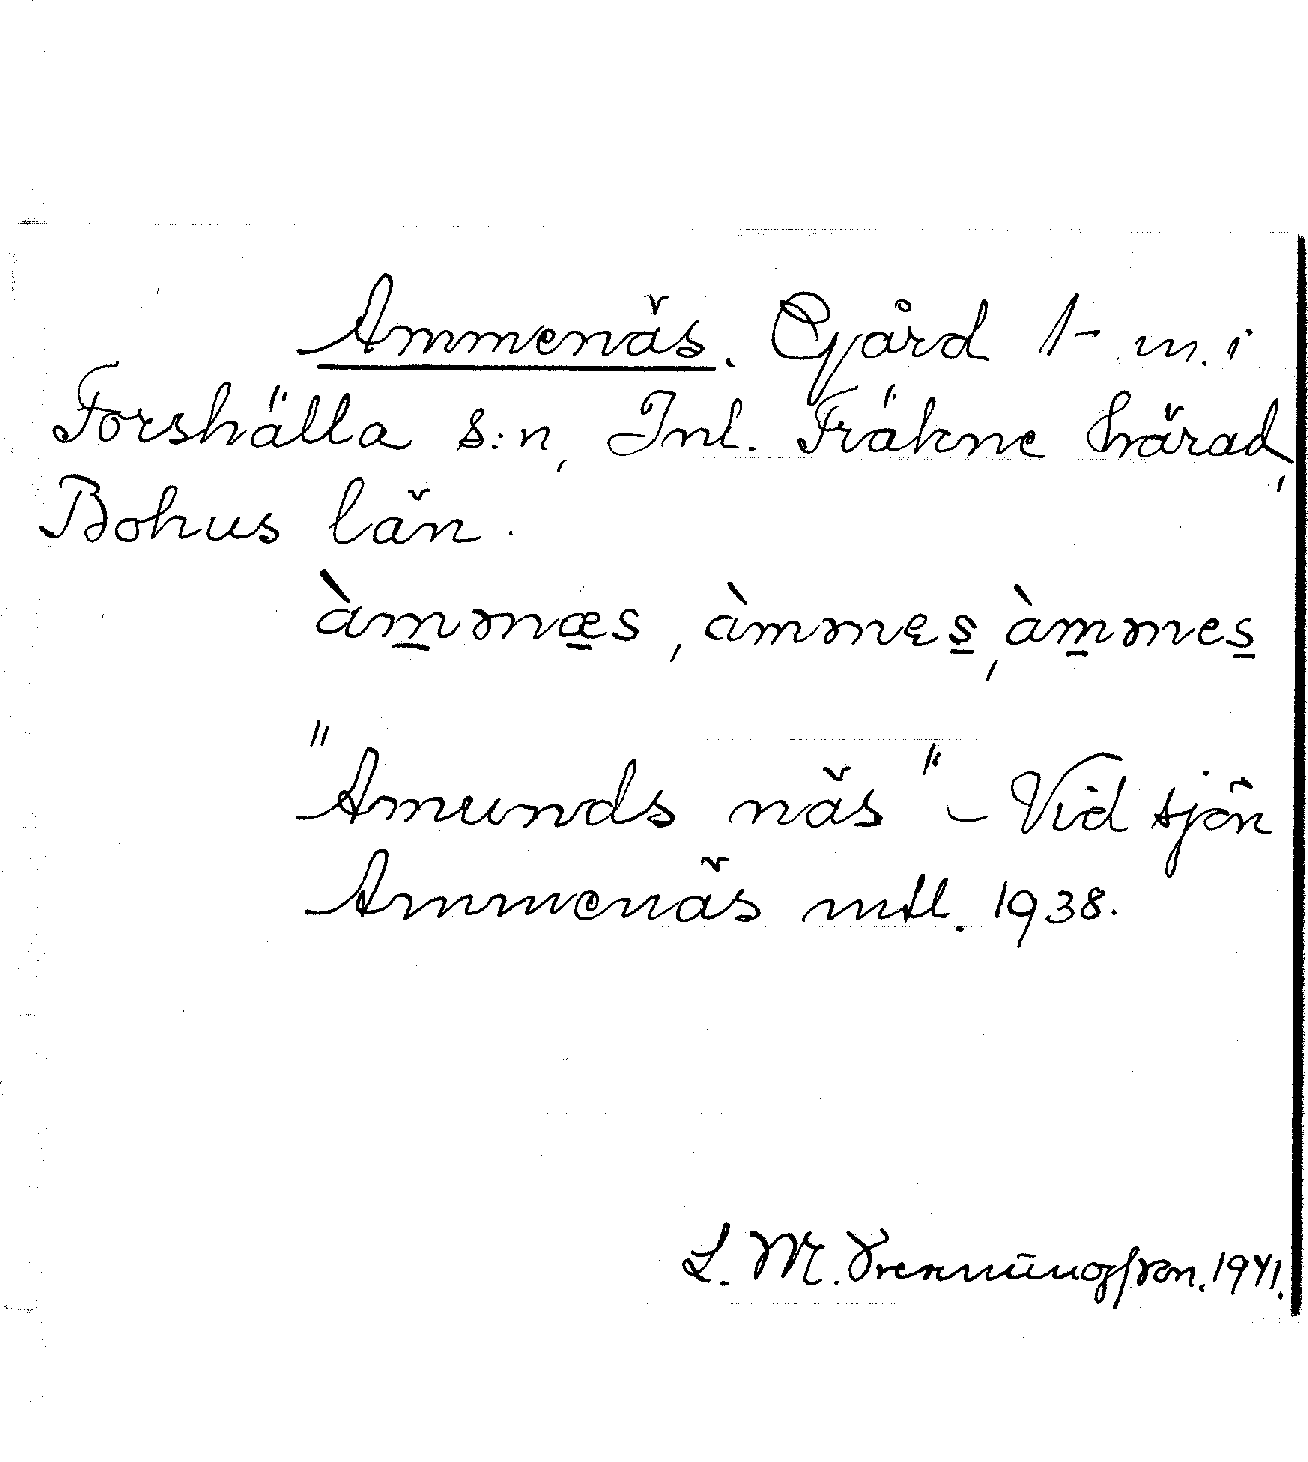 Ammenäs. Gård 1 m. i
Forshälla s:n, Inl. Fräkne härad,
Bohus län.
àm̲mnæ̲s, àmmęs̲, àm̲mes̲
"Amunds näs" – Vid sjön
Ammenäs mtl. 1938.
L. M. 1941.